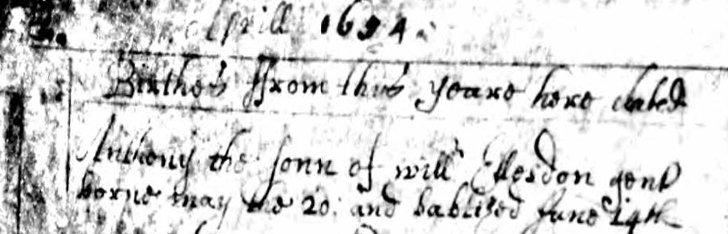 Aprill 1654.
Birthes ffrom this yeare here dated
Anthony the sonn of will^m Ellesdon gent
borne may the 20: and babtised June 14th